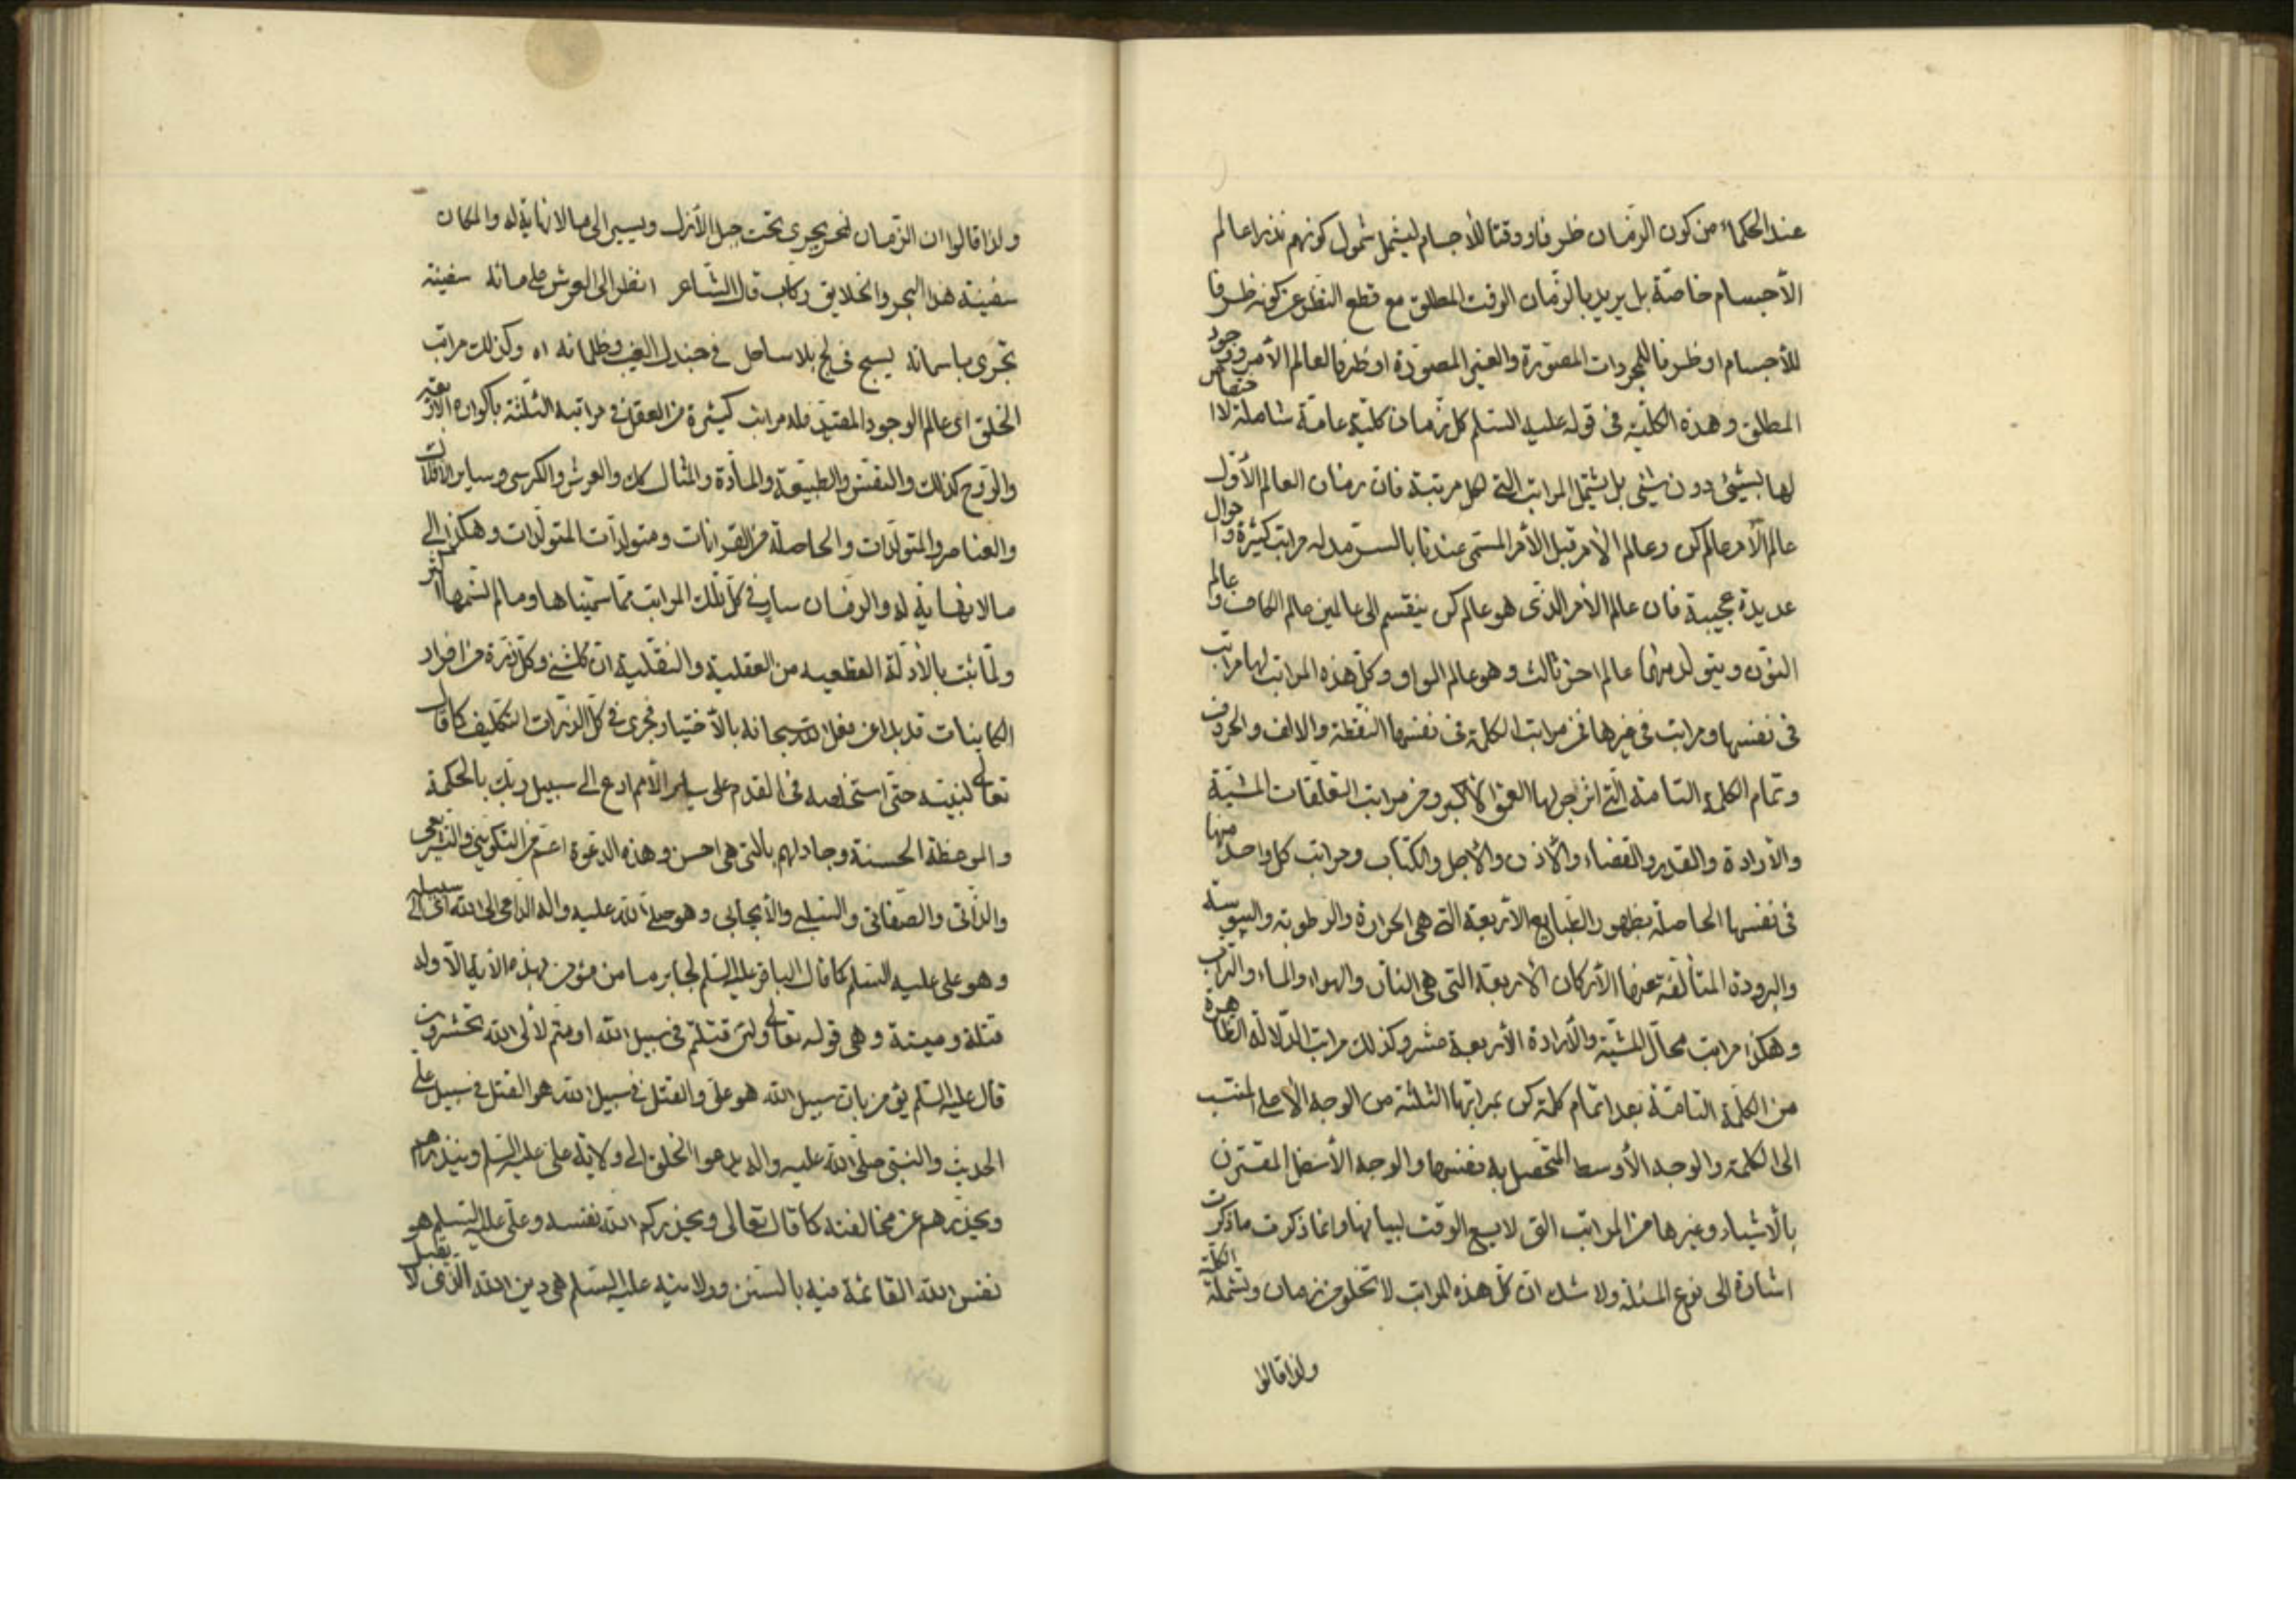 عند الحكماء من كون الزمان ظرفا ووقتا للأجسام ليشمل شمول كونهم نذرا عالم
الأجسام خاصّة بل يريد بالزمان الوقت المطلق مع قطع النظر عن كونه ظرفا
للأجسام او ظرفا للمجردات المصوّرة والغير المصوّرة او ظرفا لعالم الأمر ووجود
المطلق وهذه الكلّية فى قوله عليه السّلم كل زمان كلّية عامّة شاملة لا اختصاص
لها بشيئ دون شيئ بل يشتمل المراتب التى لكل مرتبة فان زمان العالم الأوّل
عالم الأمر عالم كن وعالم الامر قبل الأمر المسمّى عندنا بالسرمد له مراتب كثيرة واحوال
عديدة عجيبة فان عالم الامر الذى هو عالم كن ينقسم الى عالمين عالم الكاف وعالم
النون ويتولد منهما عالم اخر ثالث وهو عالم الواو وكلّ هذه المراتب لها مراتب
فى نفسها ومراتب فى غيرها فمن مراتب الكلمة فى نفسها النقطة والالف والحروف
وتمام الكلمة التامة الّتى انزجر لها العمق الأكبر ومن مراتب التعلّقات المشيّة
والأرادة والقدر والقضاء والأذن والأجل والكتاب ومراتب كل واحد منها
فى نفسها الحاصلة بظهور الطبايع الأربعة التى هى الحرارة والرطوبة واليبوسة
والبرودة المتألفة عنها الأركان الأربعة التى هى النار والهواء والماء والتراب
وهكذا مراتب محالّ المشيّة والأرادة الأربعة عشر وكذلك مراتب الدّلالة الظاهرة
من الكلمة التامّة بعد اتمام كلمة كن بمراتبها الثلثة من الوجه الأعلى المنتسب
الى الكلمة والوجه الأوسط المتحصل به نفسها والوجه الأسفل المقترن
بالأشياء وغيرها من المراتب التى لا يسع الوقت لبيانها وانما ذكرت ما ذكرت
اشارة الى نوع المسئلة ولا شك ان كلّ هذه المراتب لا تخلو من زمان وتشمله الكلّية
ولذا قالوا
ولذا قالوا ان الزمان نحر يجرى تحت جبل الأزل ويسير الى ما لا نهاية له والمكان
سفينة هذا البحر والخلايق ركاب قال الشاعر انظر الى العرش على مائه سفينة
تجرى باسمائه يسبح فى لج بلا ساحل فى جندل الغيب وظلمائه اه وكذلك مراتب
الخلق اى عالم الوجود المقيد فله مراتب كثيرة من العقل فى مراتبه الثلثة باكواره الأربعة
والروح كذلك والنفس والطبيعة والمادّة والمثال كك والعرش والكرسى وساير الأفلاك
والعناصر والمتولّدات والحاصلة من القرانات ومتولدات المتولّدات وهكذا الى
ما لا نهاية له والزمان سار فى كلّ تلك المراتب مما سمّيناها وما لم نسمّها اكثر
ولمّا ثبت بالأدلّة القطعيه من العقلية والنقلية انّ كلشئ وكلّ ذرة من افراد
الكاينات قد بدا عن فعل الله سبحانه بالأختيار فجرى فى كلّ الذرات التكليف كما قال
تعالى لنبيّه حتى استخلصه فى القدم على ساير الأمم ادع الى سبيل ربّك بالحكمة
والموعظة الحسنة وجادلهم بالتى هى احسن وهذه الدعوة اعمّ من التكوينى والتشريعى
والذاتى والصفاتى والسلبى والأيجابى وهو صلى الله عليه واله الداعى الى الله اى الى سبيله
وهو على عليه السلم كما قال الباقر عليه السلم لجابر ما من مؤمن بهذه الأية الّا وله
قتلة وميتة وهى قوله تعالى ولئن قتلتم فى سبيل الله او متّم لألى الله تحشرون
قال عليه السّلم يق من بان سبيل الله هو علىّ والقتل فى سبيل الله هو القتل فى سبيل على
الحديث والنبى صلّى الله عليه واله يدعوا الخلق الى ولاية على عليه السلم وينذرهم
ويحذرهم عن مخالفته كما قال تعالى ويحذركم الله نفسه وعلى عليه السلم هو
نفس الله القائمة فيه بالسنن وولايته عليه السّلم هى دين الله الذى لا يقبل